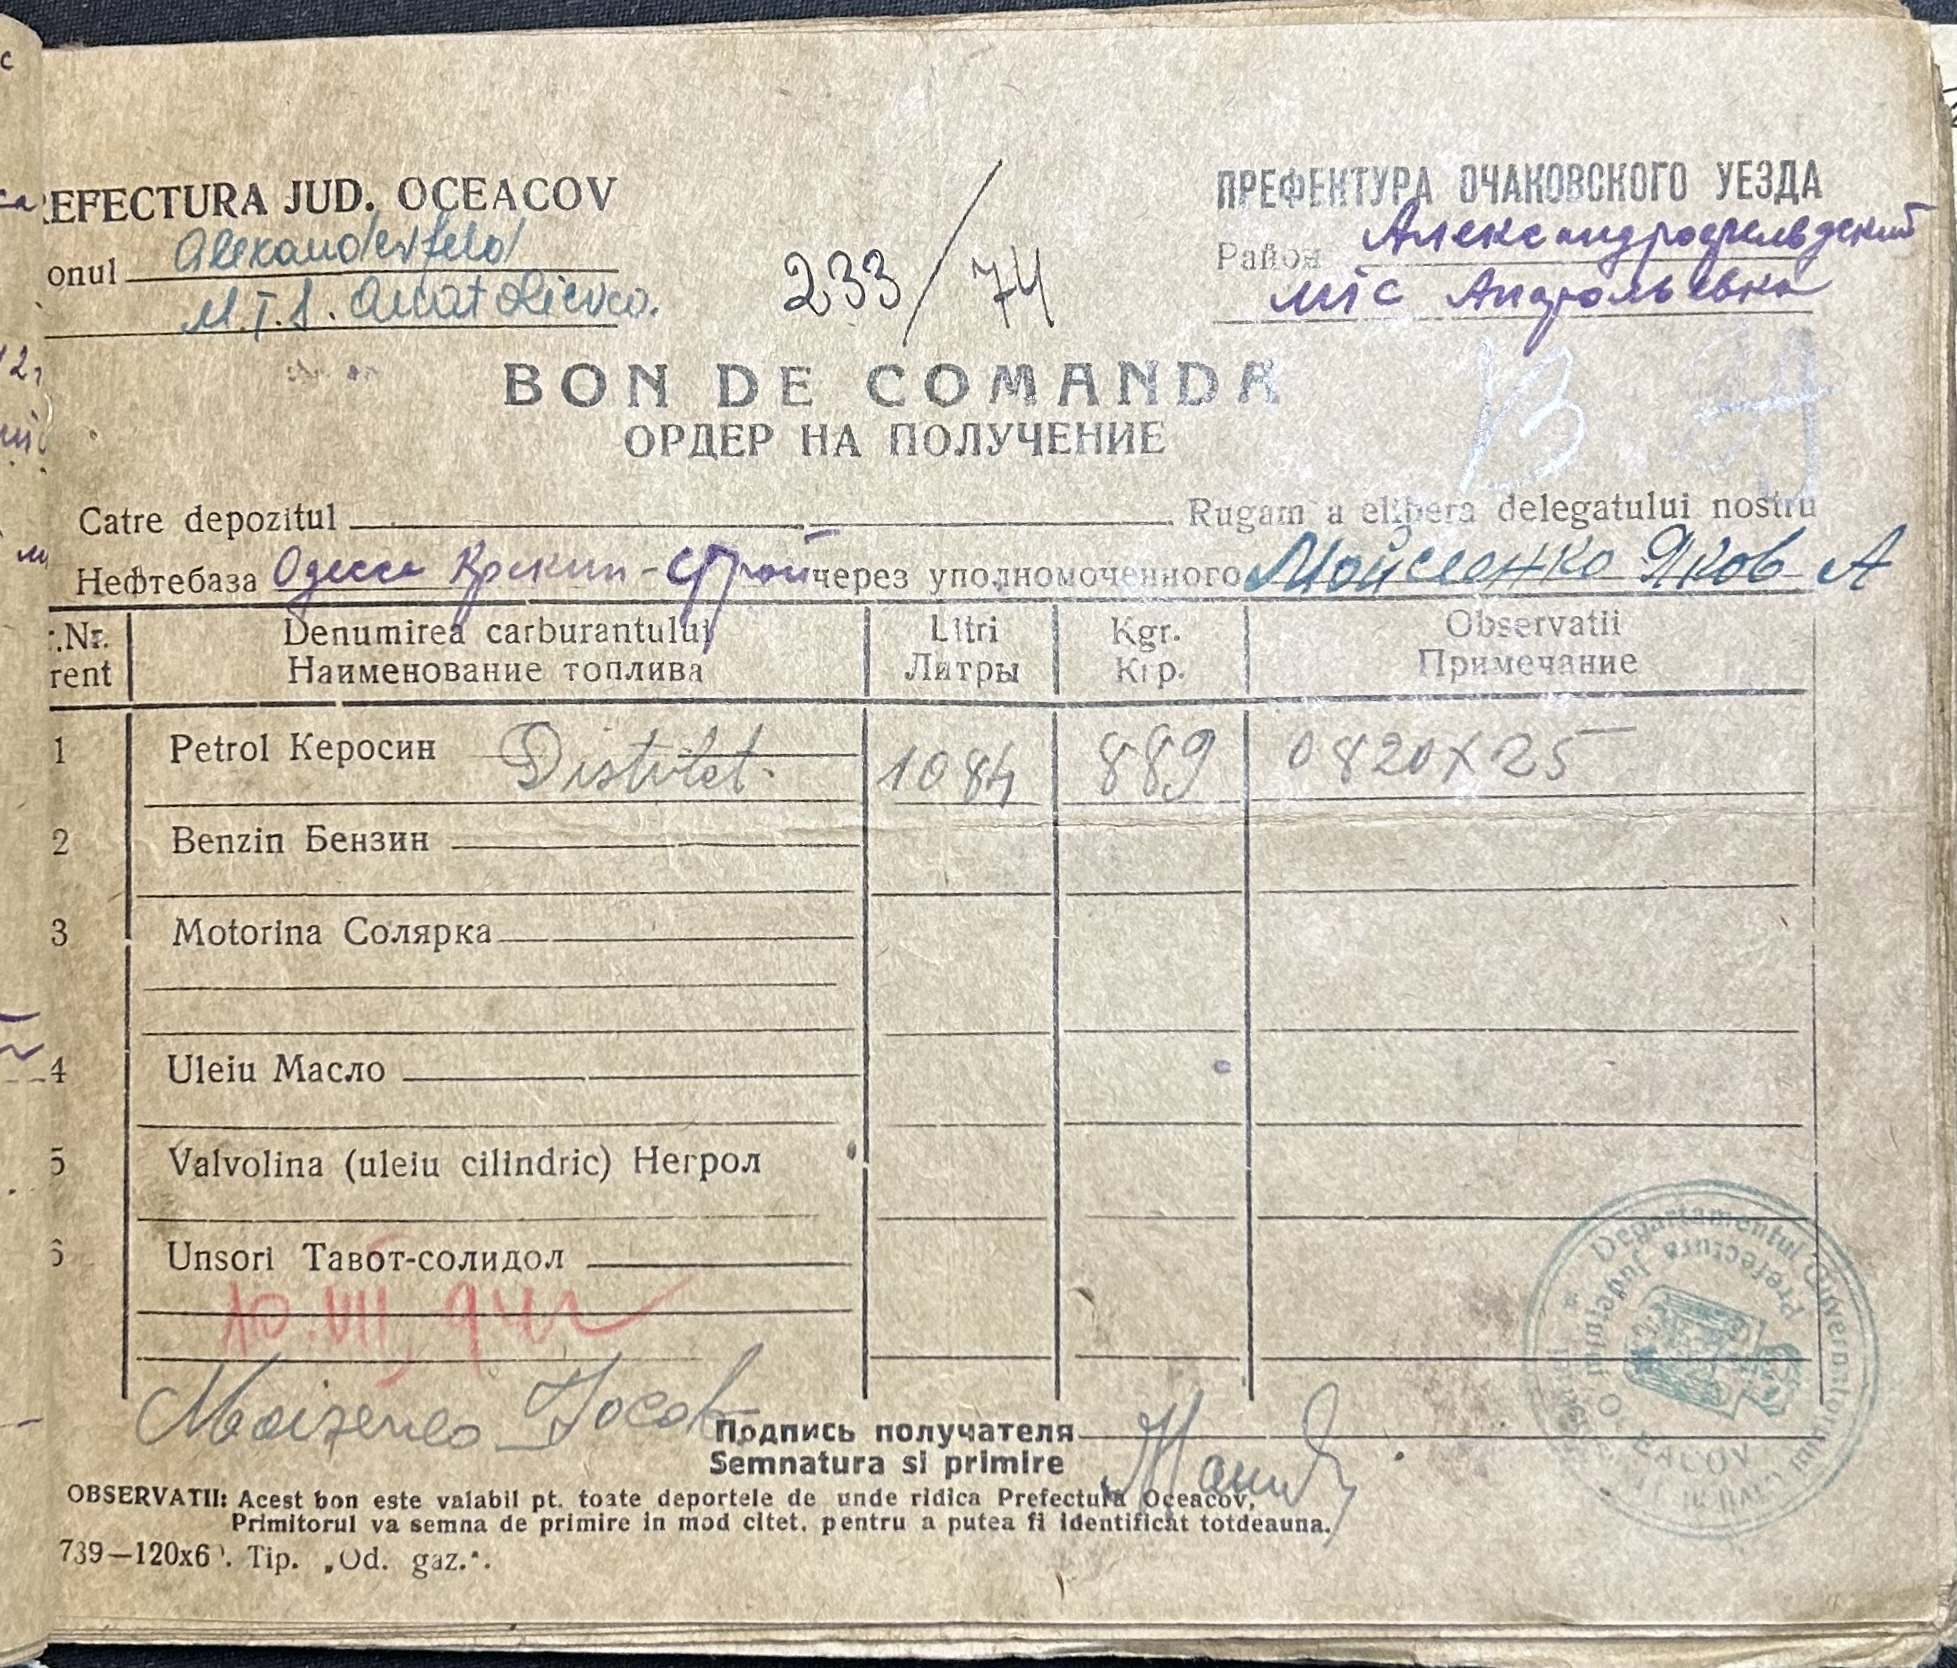 REFECTURA JUD. OCEACOV
ПРЕФЕКТУРА ОЧАКОВСКОГО УЕЗДА
onul Alexanderfeld
Район Александрофельдский
M.T.S.
233/74
мтс
BON DE COMANDA
ОРДЕР НА ПОЛУЧЕНИЕ
Catre depozitul Rugam a elibera delegatului nostru
Нефтебаза Одесса Крекин-строй через уполномоченного Мойсеенко Яков А
.Nr. Denumirea carburantului Litri Kgr. Observatii
rent Наименование топлива Литры Кгр. Примечание
1 Petrol Керосин Distilat. 1084 889 0820 X 25
2 Benzin Бензин
3 Motorina Солярка
4 Uleiu Масло
5 Valvolina (uleiu cilindric) Негрол
6 Unsori Тавот-солидол
10.VII, 942
Moisenco Iacob
Подпись получателя
Semnatura si primire
OBSERVATII: Acest bon este valabil pt. toate deportele de unde ridica Prefectura Oceacov.
Primitorul va semna de primire in mod citet, pentru a putea fi identificat totdeauna.
739—120x6 . Tip. „Od. gaz.".
Departamentul Guvernatorului Civil al
Prefectura Judetului OCEACOV